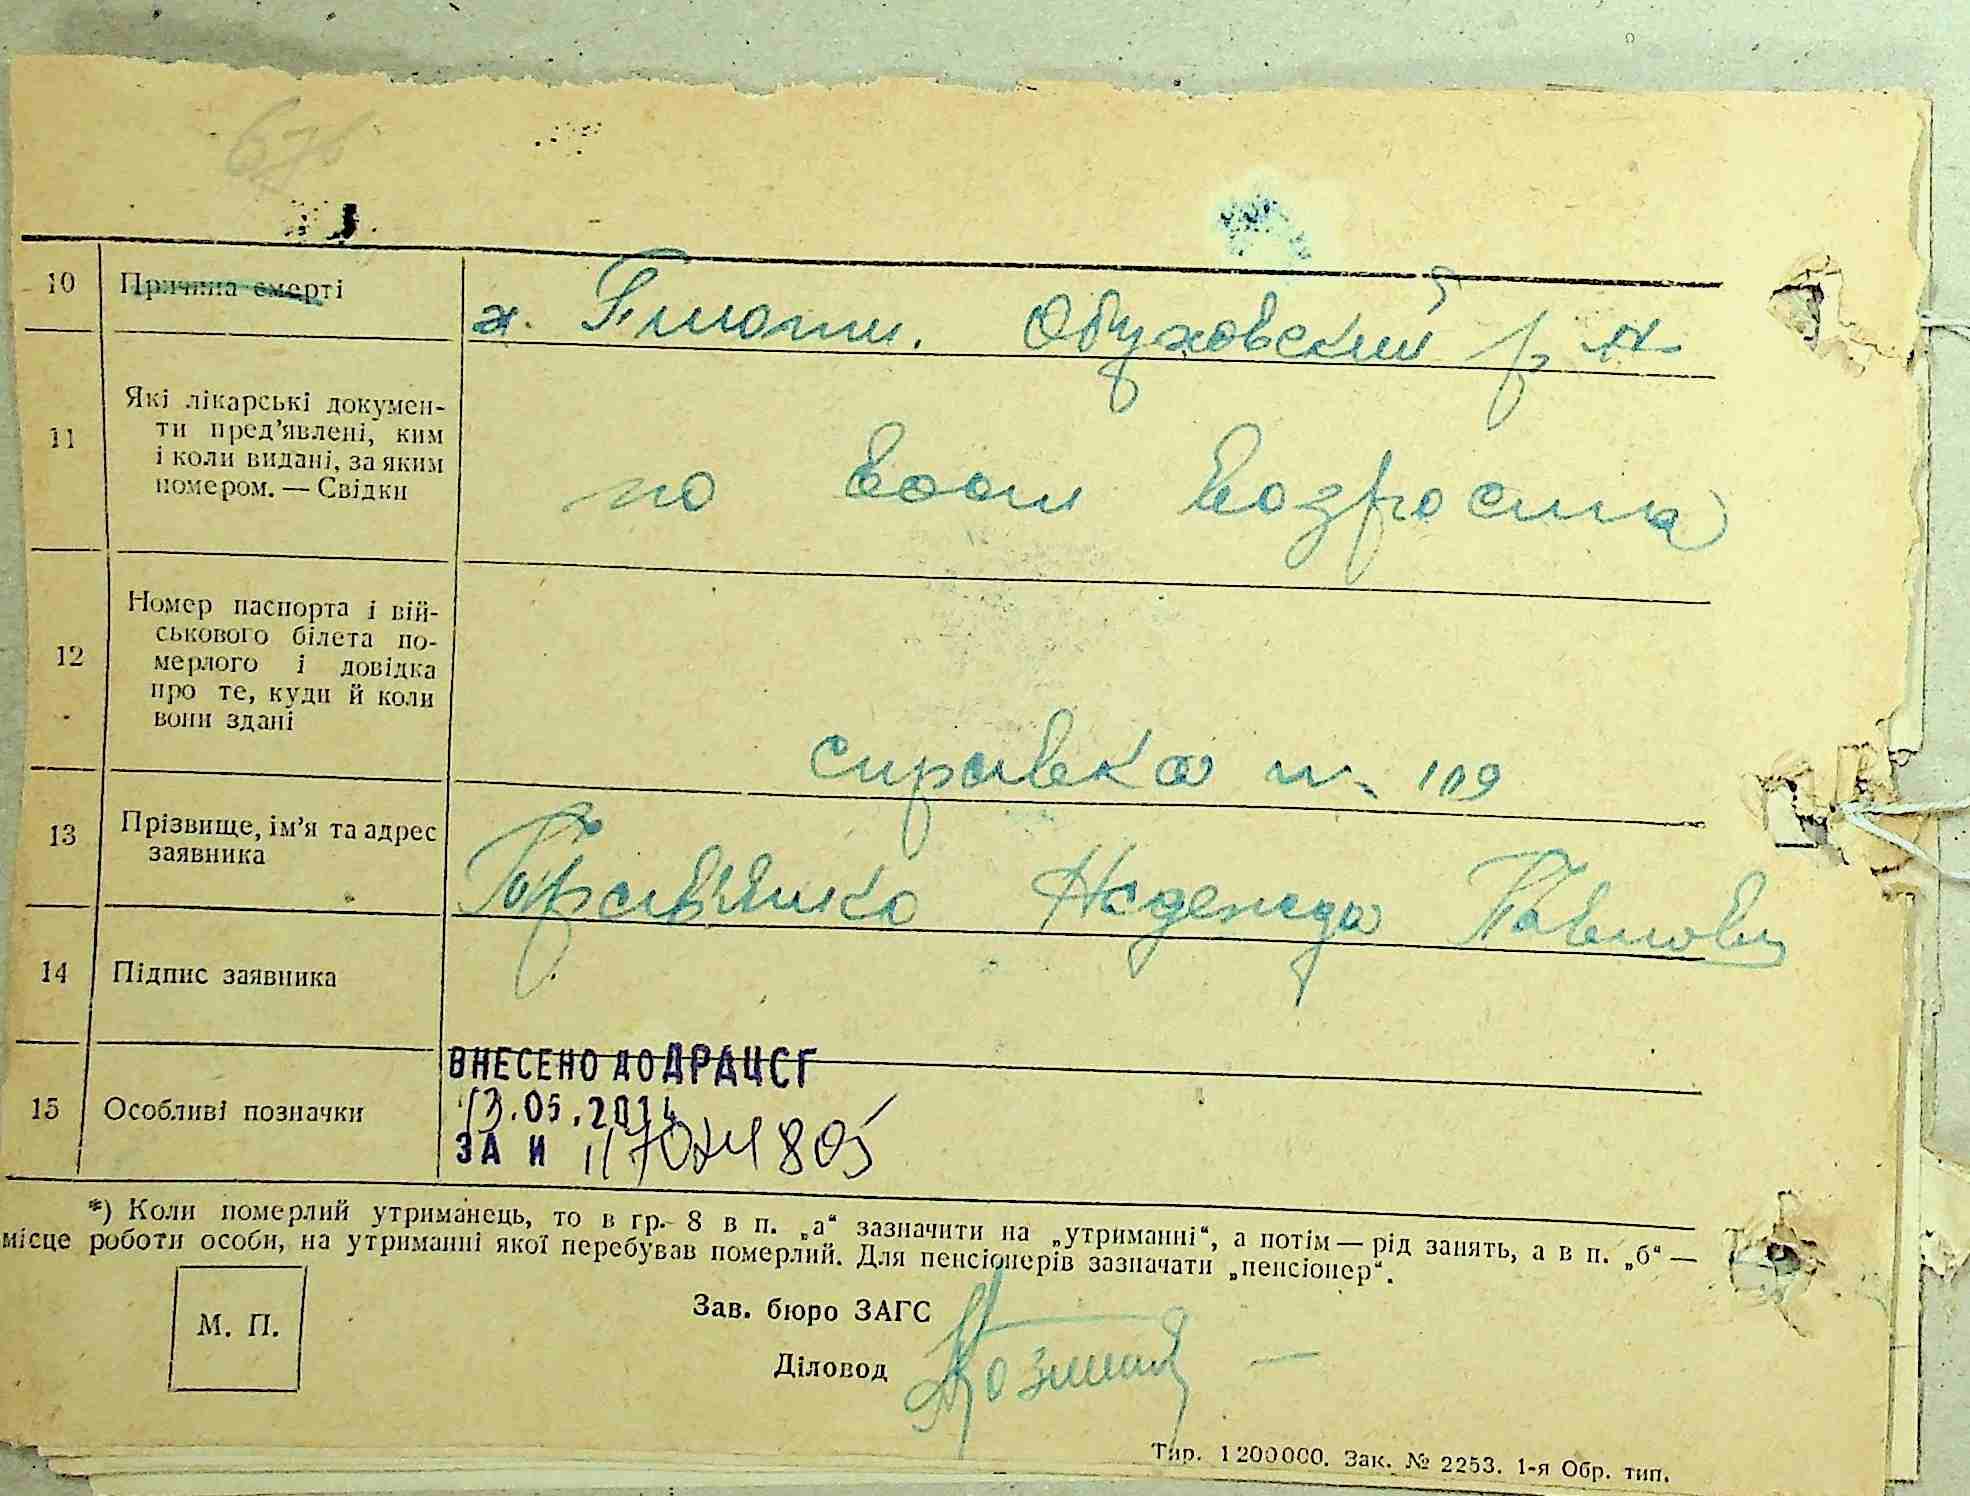 676
10 Причина смерті
х. Гмюти. Обуховский р-н
11 Які лікарські докумен-
ти пред'явлені, ким
і коли видані, за яким
номером. — Свідки
по возраста
12 Номер паспорта і вій-
ськового білета по-
мерлого і довідка
про те, куди й коли
вони здані
справка н. 109
13 Прізвище, ім'я та адрес
заявника
Надежда Павловн
14 Підпис заявника
15 Особливі позначки
ВНЕСЕНО ДО ДРАЦСГ
13.05.2014
ЗА И
*) Коли померлий утриманець, то в гр. 8 в п. „а“ зазначити на „утриманні“, а потім — рід занять, а в п. „б“ —
місце роботи особи, на утриманні якої перебував померлий. Для пенсіонерів зазначати „пенсіонер“.
М. П.
Зав. бюро ЗАГС
Діловод
Тир. 1200000. Зак. № 2253. 1-я Обр. тип.